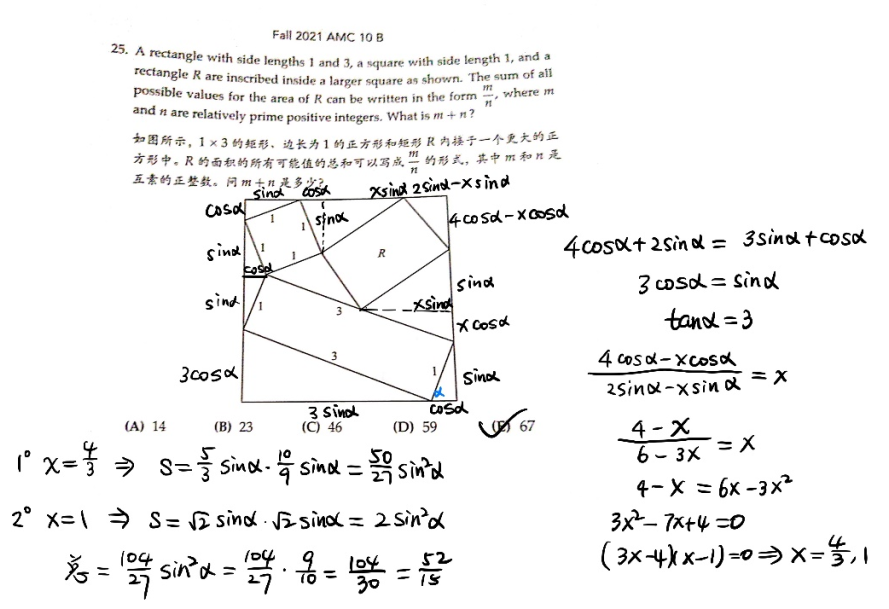 Fall 2021 AMC 10 B
25. A rectangle with side lengths 1 and 3, a square with side length 1, and a
rectangle R are inscribed inside a larger square as shown. The sum of all
possible values for the area of R can be written in the form m/n, where m
and n are relatively prime positive integers. What is m + n?
如图所示，1 × 3 的矩形、边长为 1 的正方形和矩形 R 内接于一个更大的正
方形中。R 的面积的所有可能值的总和可以写成 m/n 的形式，其中 m 和 n 是
互素的正整数。问 m + n 是多少？
sinα cosα xsinα 2sinα-xsinα
cosα 1 1 sinα 4cosα-xcosα
sinα 1 1 R
cosα sinα
sinα 1 3 xsinα
xcosα
3cosα 3 1 sinα
α
3sinα cosα
(A) 14 (B) 23 (C) 46 (D) 59 (E) 67
4cosα+2sinα = 3sinα+cosα
3cosα = sinα
tanα = 3
(4cosα-xcosα)/(2sinα-xsinα) = x
(4-x)/(6-3x) = x
4-x = 6x-3x²
3x²-7x+4=0
(3x-4)(x-1)=0 ⇒ x=4/3, 1
1° x=4/3 ⇒ S=5/3 sinα·10/9 sinα = 50/27 sin²α
2° x=1 ⇒ S=√2 sinα·√2 sinα = 2sin²α
= 104/27 sin²α = 104/27 · 9/10 = 104/30 = 52/15